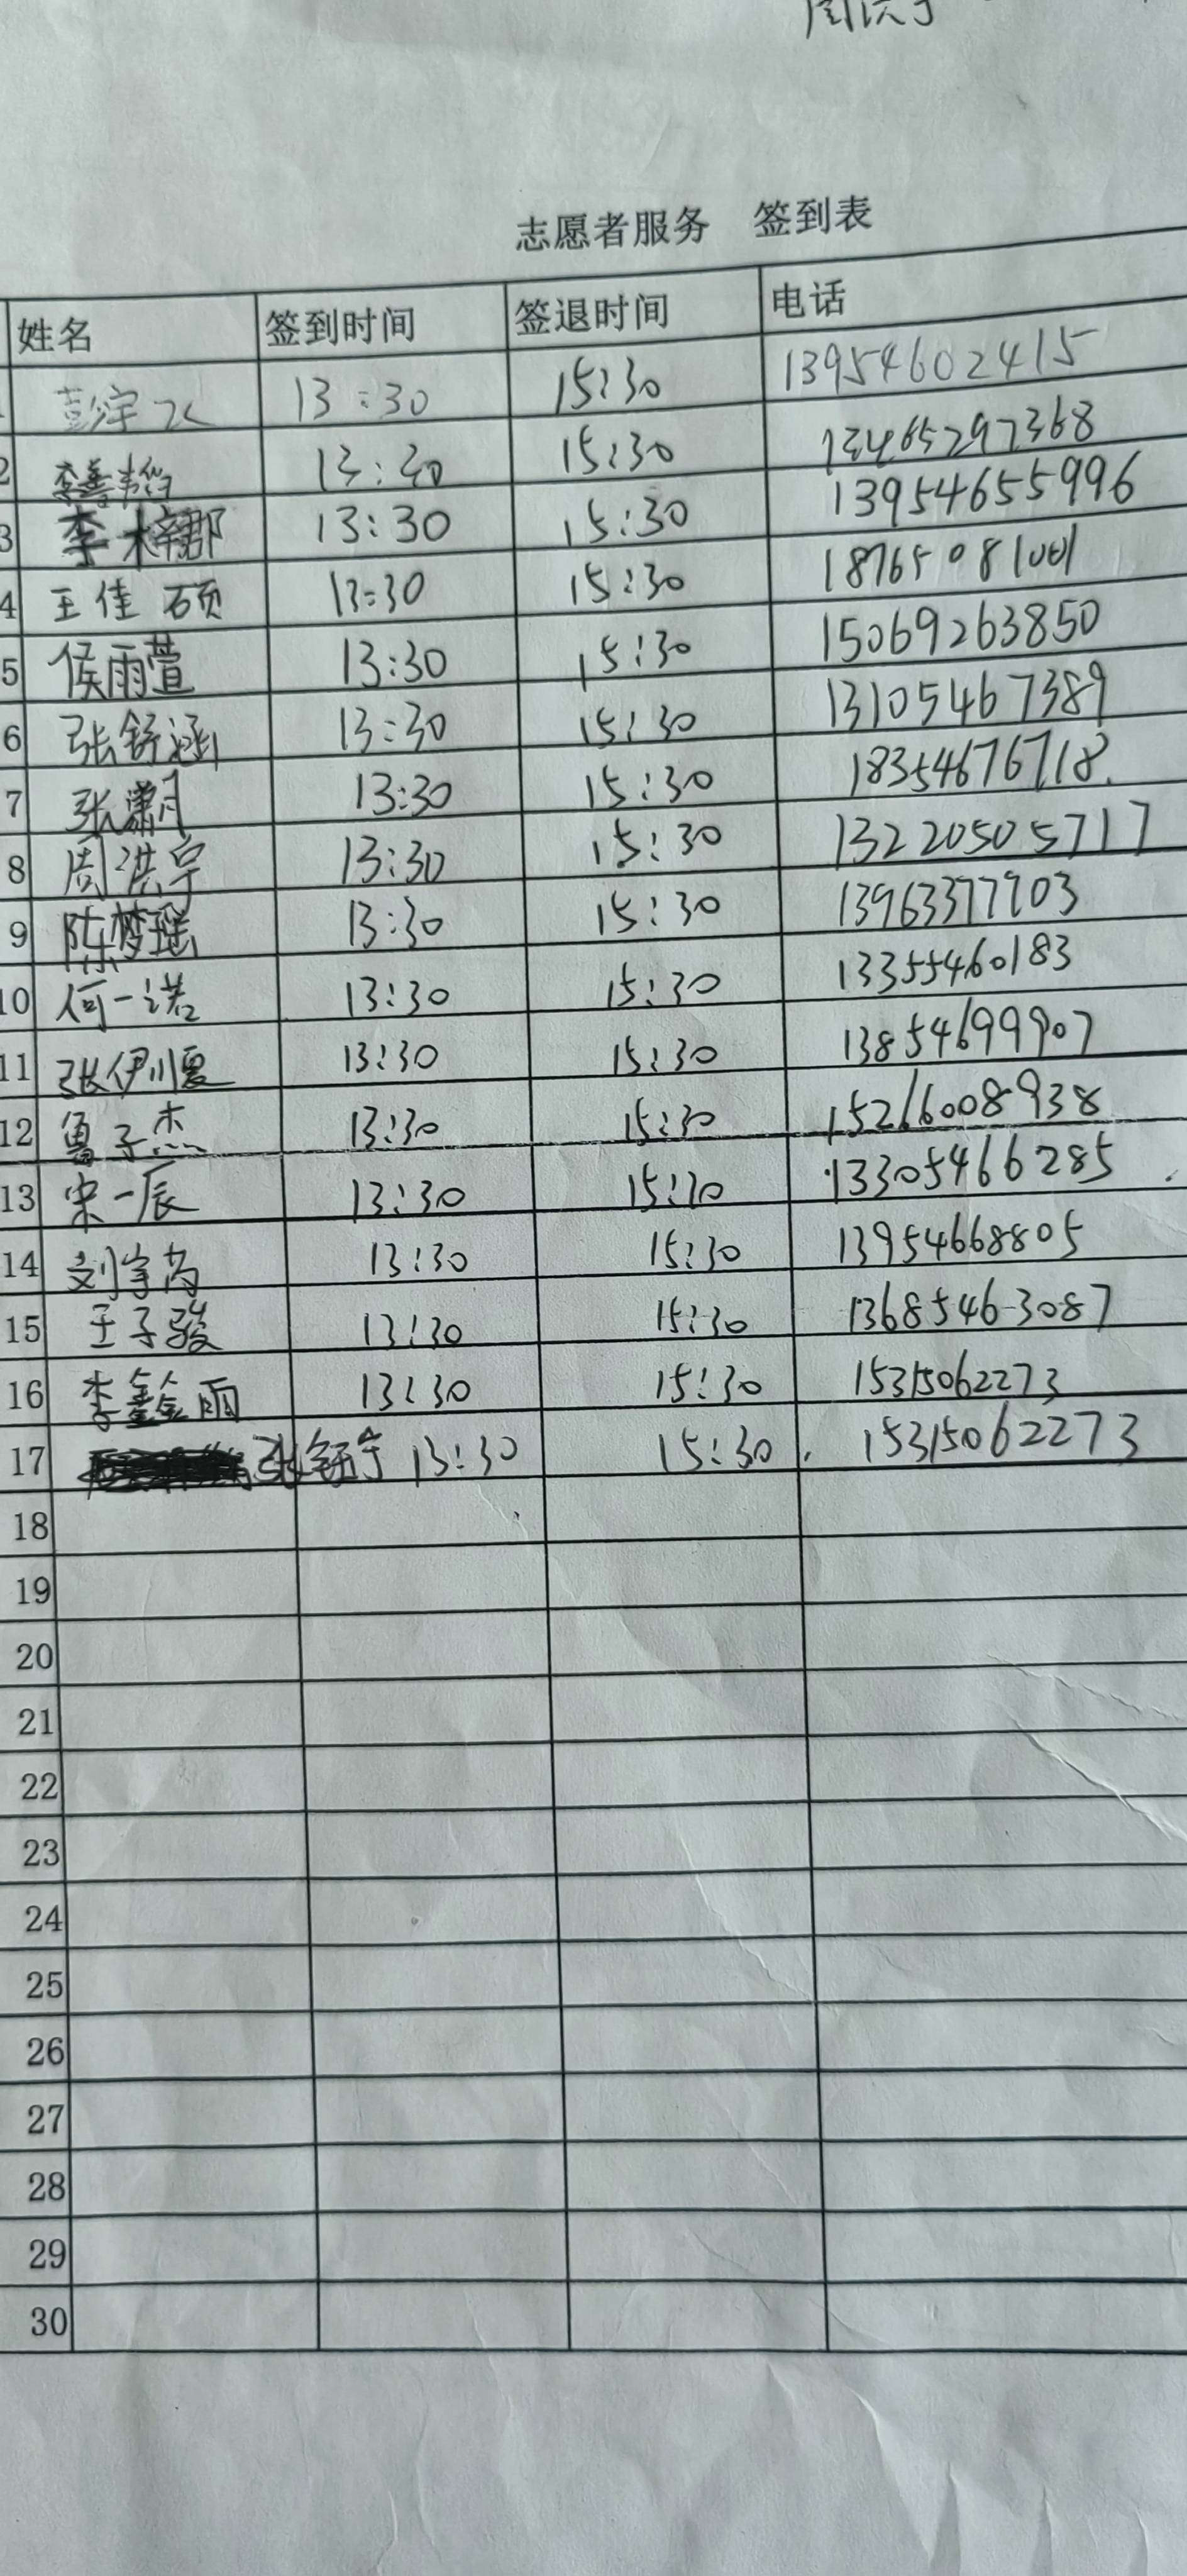 周洪宇
志愿者服务 签到表
姓名 签到时间 签退时间 电话
彭宇 13:30 15:30 13954602415
2 李善 13:30 15:30 13465297368
3 李梓郡 13:30 15:30 13954655996
4 王佳硕 13:30 15:30
5 侯雨萱 13:30 15:30 15069263850
6 张舒涵 13:30 15:30 13105467389
7 张潇月 13:30 15:30 18354676718.
8 周洪宇 13:30 15:30 13220505717
9 陈梦瑶 13:30 15:30 13963377903
10 何一诺 13:30 15:30 13355460183
11 张伊 13:30 15:30 13854699907
12 鲁子杰 13:30 15:30 15266008938
13 宋一辰 13:30 15:30 13305466285
14 刘宇芮 13:30 15:30 13954668805
15 王子骏 13:30 15:30 13685463087
16 李鑫雨 13:30 15:30 15315062273
17 张钰宁 13:30 15:30 15315062273
18
19
20
21
22
23
24
25
26
27
28
29
30